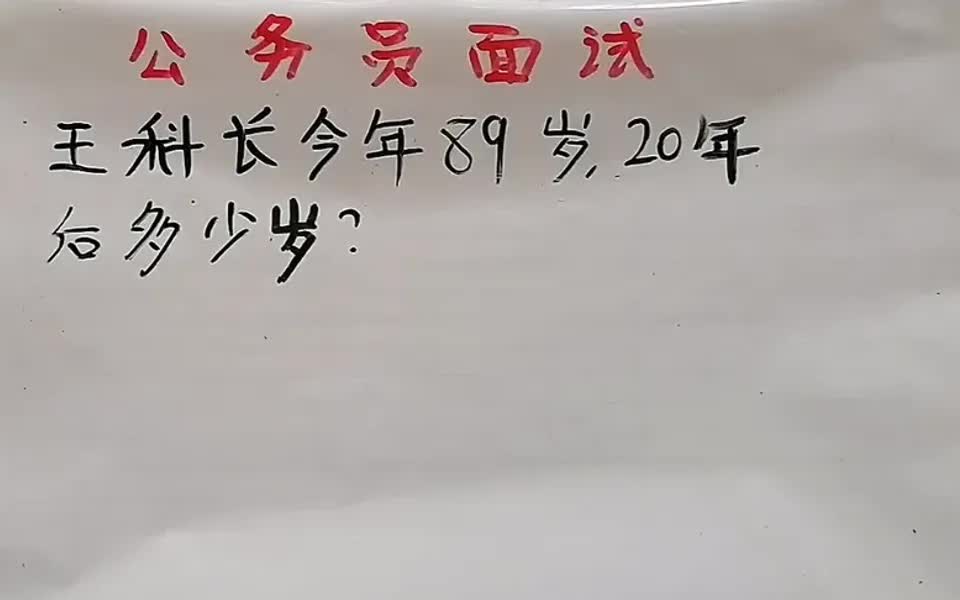 公务员面试
王科长今年89岁,20年
后多少岁?